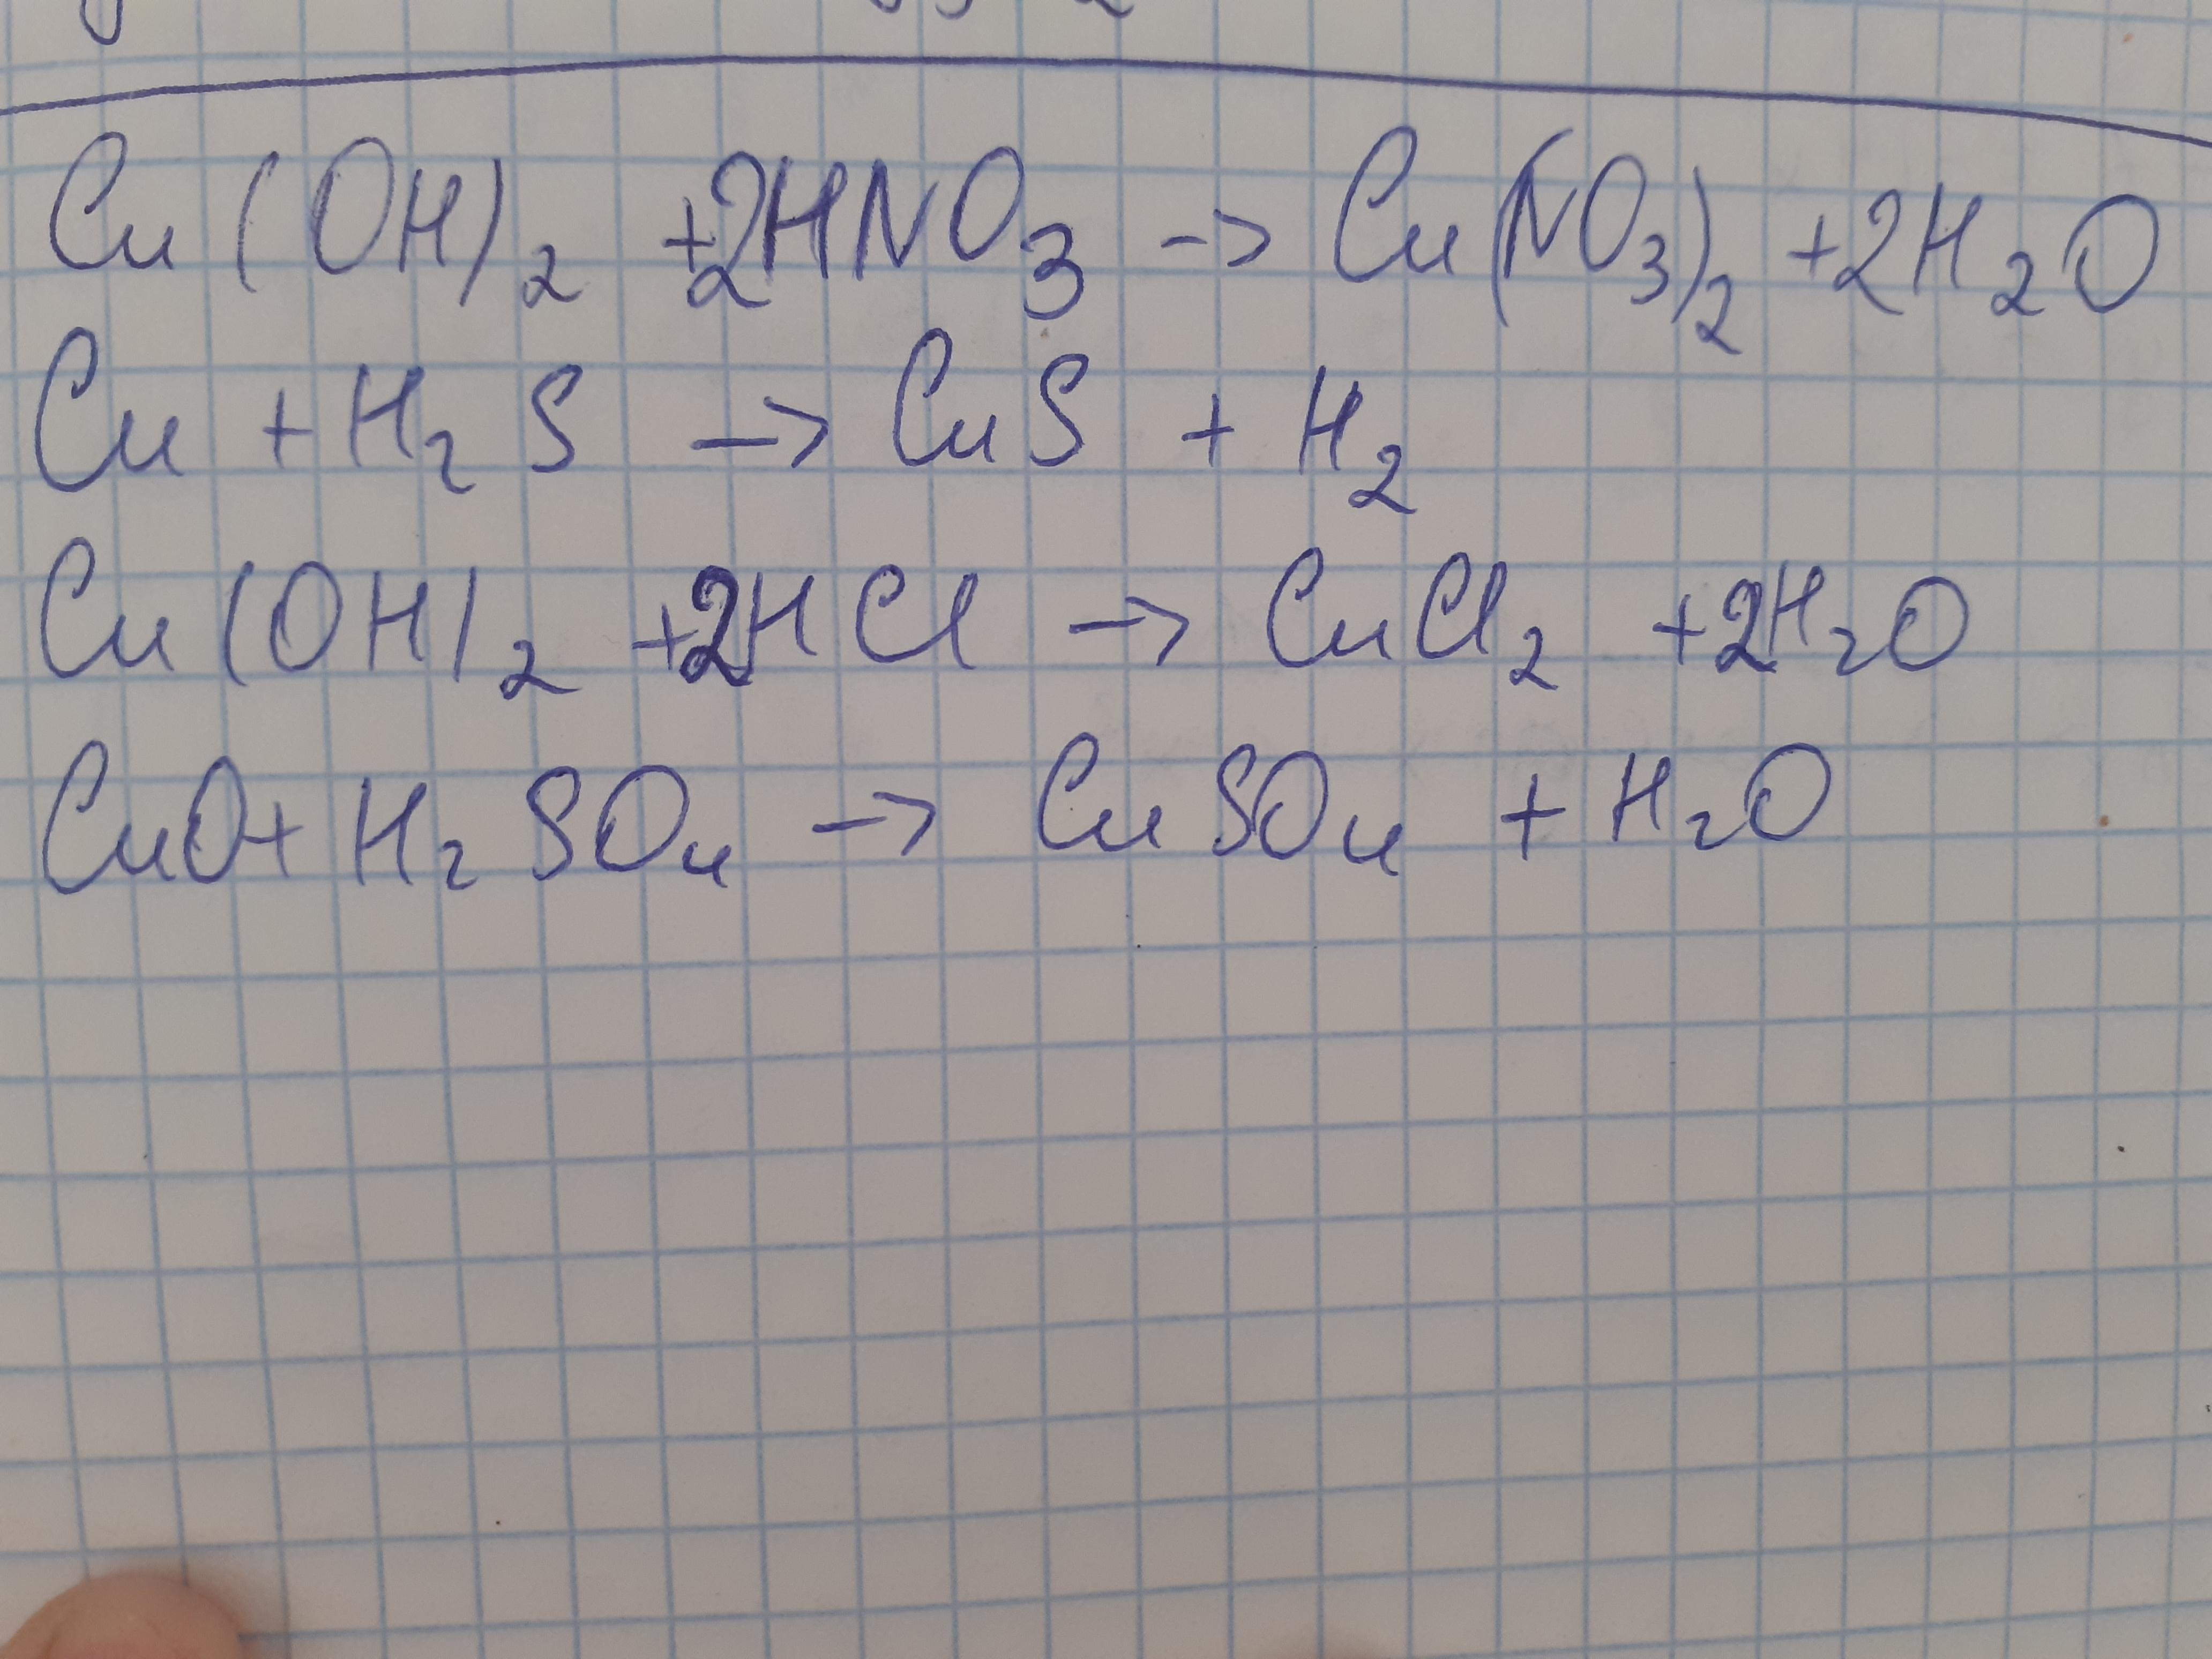 Cu(OH)₂ +2HNO₃ -> Cu(NO₃)₂ +2H₂O
Cu + H₂S -> CuS + H₂
Cu(OH)₂ +2HCl -> CuCl₂ +2H₂O
CuO+ H₂SO₄ -> CuSO₄ + H₂O